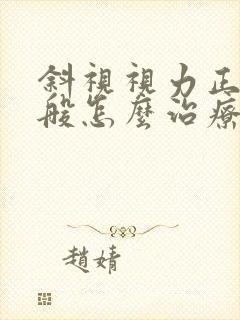 斜視視力正
般怎麼治療
趙婧